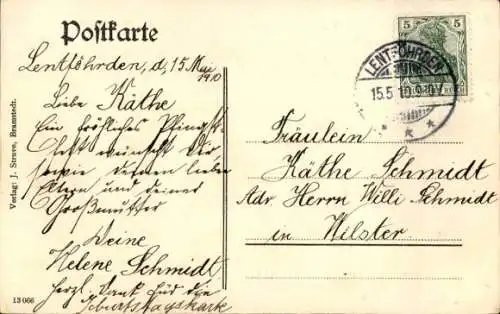 Postkarte
Lentföhrden, d, 15 Mai
1910
Liebe Käthe
Ein fröhliches Pfingst-
fest wünscht dir
sowie deinen lieben
Eltern und deiner
Großmutter
Deine
Helene Schmidt
Herzl. Dank für die
Geburtstagskarte
Verlag: J. Struve, Bramstedt.
13066
5 5
LENTFÖHRDEN
15.5 10.9-10V
* * *
Fräulein
Käthe Schmidt
Adr Herrn Willi Schmidt
in Wilster